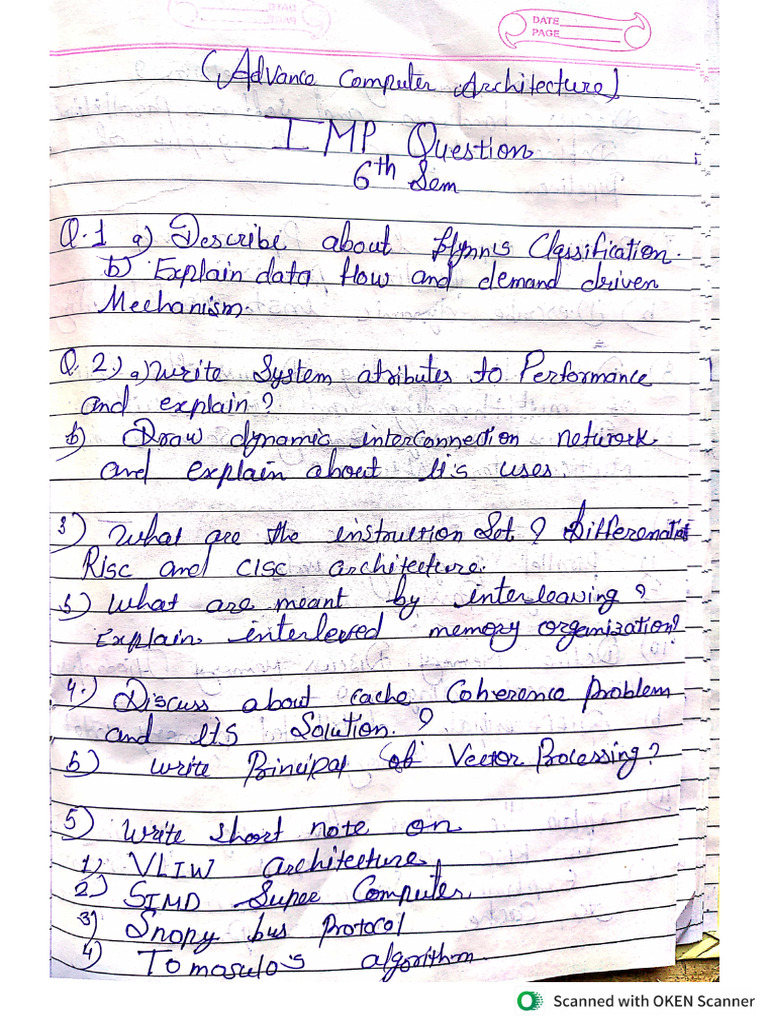 DATE
PAGE
(Advance Computer Architecture)
IMP Question
6th Sem
Q.1 a) Describe about Flynn's Classification.
b) Explain data flow and demand driven
Mechanism.
Q.2) a) Write System atributes to Performance
and explain?
b) Draw dynamic interconnection network
and explain about it's uses.
3) What are the instruction Set? Differenatiat
Risc and CISC architecture.
b) What are meant by interleaving?
Explain interleved memory organization?
4.) Discuss about cache Coherence Problem
and its Solution.?
b) Write Principal of Vector Processing?
5) Write short note on
1) VLIW architecture
2) SIMD Super Computer.
3) Snopy bus Protocol
4) Tomasulo's algorithm.
Scanned with OKEN Scanner